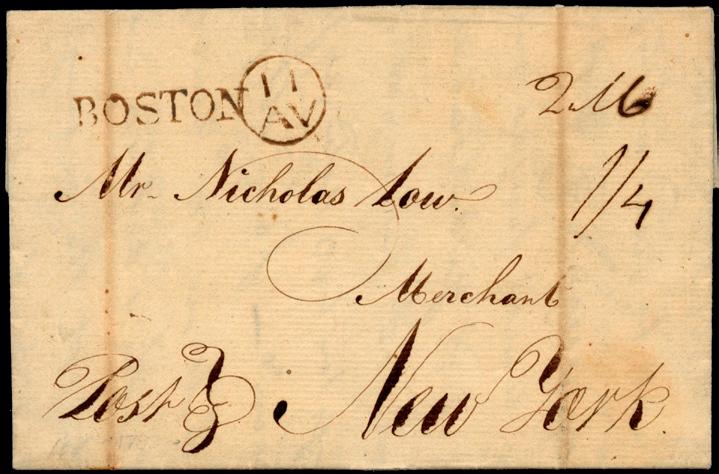 BOSTON
11
AV
2
Mr. Nicholas Low.
1/4
Merchant
Post
New York.